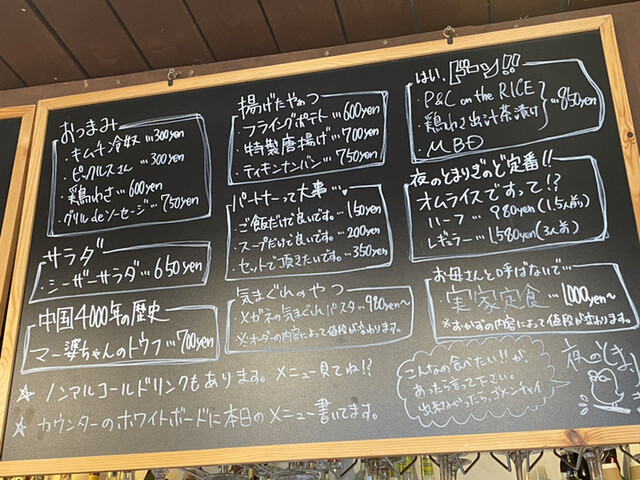 おつまみ
・キムチ冷奴…300yen
・ピクルスさん…300yen
・鶏わさ…600yen
・グリルdeソーセージ…750yen
サラダ
・シーザーサラダ…650yen
中国4000年の歴史
・マー婆ちゃんのトウフ…700yen
揚げたやぁつ
・フライングポテト…600yen
・特製唐揚げ…700yen
・チキンナンバン…750yen
パートナーって大事…
・ご飯だけで良いです。…150yen
・スープだけで良いです。…200yen
・セットで頂きたいです。…350yen
気まぐれのやつ
・メガネの気まぐれパスタ…980yen〜
※オーダーの内容によって値段が変わります。
はい、ドーン!!
・P&C on the RICE
・鶏わさ出汁茶漬け
・MBD
…850yen
夜のとまりぎのど定番!!
オムライスですって!?
ハーフ…980yen(1.5人前)
レギュラー…1580yen(3人前)
お母さんと呼ばないで…
・実家定食…1000yen〜
※おかずの内容によって値段が変わります。
☆ノンアルコールドリンクもあります。メニュー見てね!?
☆カウンターのホワイトボードに本日のメニュー書いてます。
こんなの食べたい!!が、
あったら言って下さい。
出来なかったら、ゴメンチャイ
夜のとま